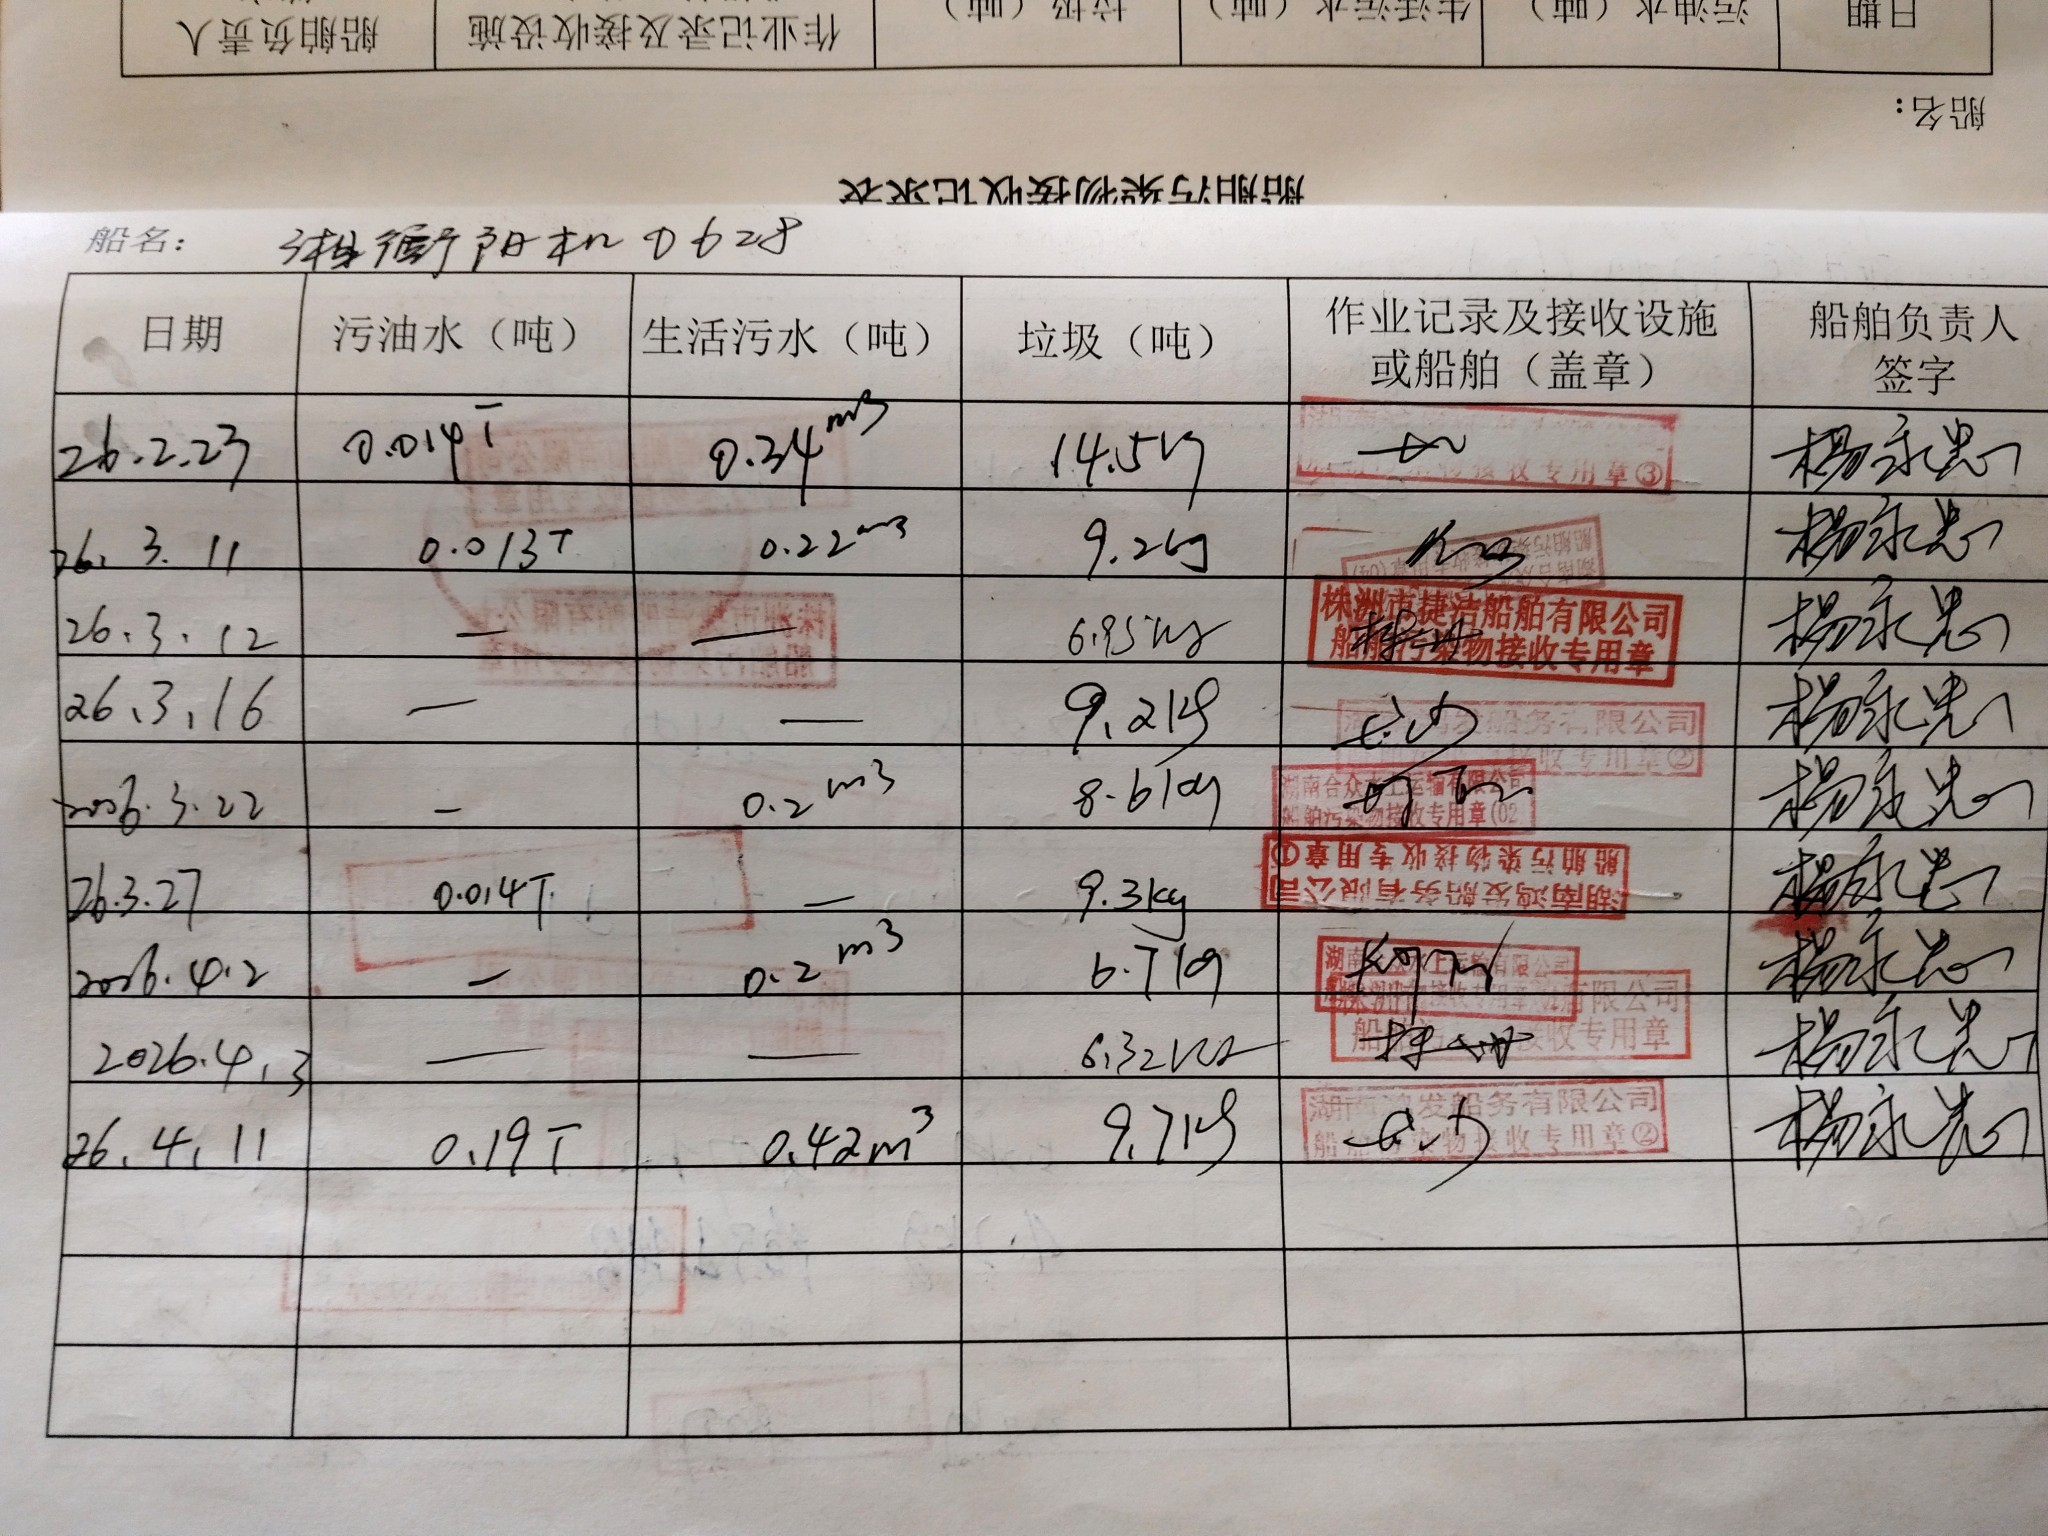 日期 污油水（吨） 生活污水（吨） 垃圾（吨） 作业记录及接收设施 船舶负责人
船名：
船舶污染物接收记录表
船名： 湘衡阳机0628
日期 污油水（吨） 生活污水（吨） 垃圾（吨） 作业记录及接收设施 或船舶（盖章） 船舶负责人 签字
26.2.23 0.014T 0.34m3 14.5kg 接收专用章③ 杨永忠
26.3.11 0.013T 0.22m3 9.2kg 杨永忠
26.3.12 — — 6.95kg 株洲市捷洁船舶有限公司 船舶污染物接收专用章 杨永忠
26.3.16 — — 9.2kg 发船务有限公司 接收专用章② 杨永忠
2026.3.22 — 0.2m3 8.6kg 湖南合众水上运输有限公司 船舶污染物接收专用章(02 杨永忠
26.3.27 0.014T — 9.3kg 湖南鸿发船务有限公司 船舶污染物接收专用章① 杨永忠
2026.4.2 — 0.2m3 6.7kg 湖南 上运输有限公司 杨永忠
2026.4.3 — — 6.32kg 有限公司 接收专用章 杨永忠
26.4.11 0.19T 0.42m3 9.7kg 湖南鸿发船务有限公司 船舶污染物接收专用章② 杨永忠